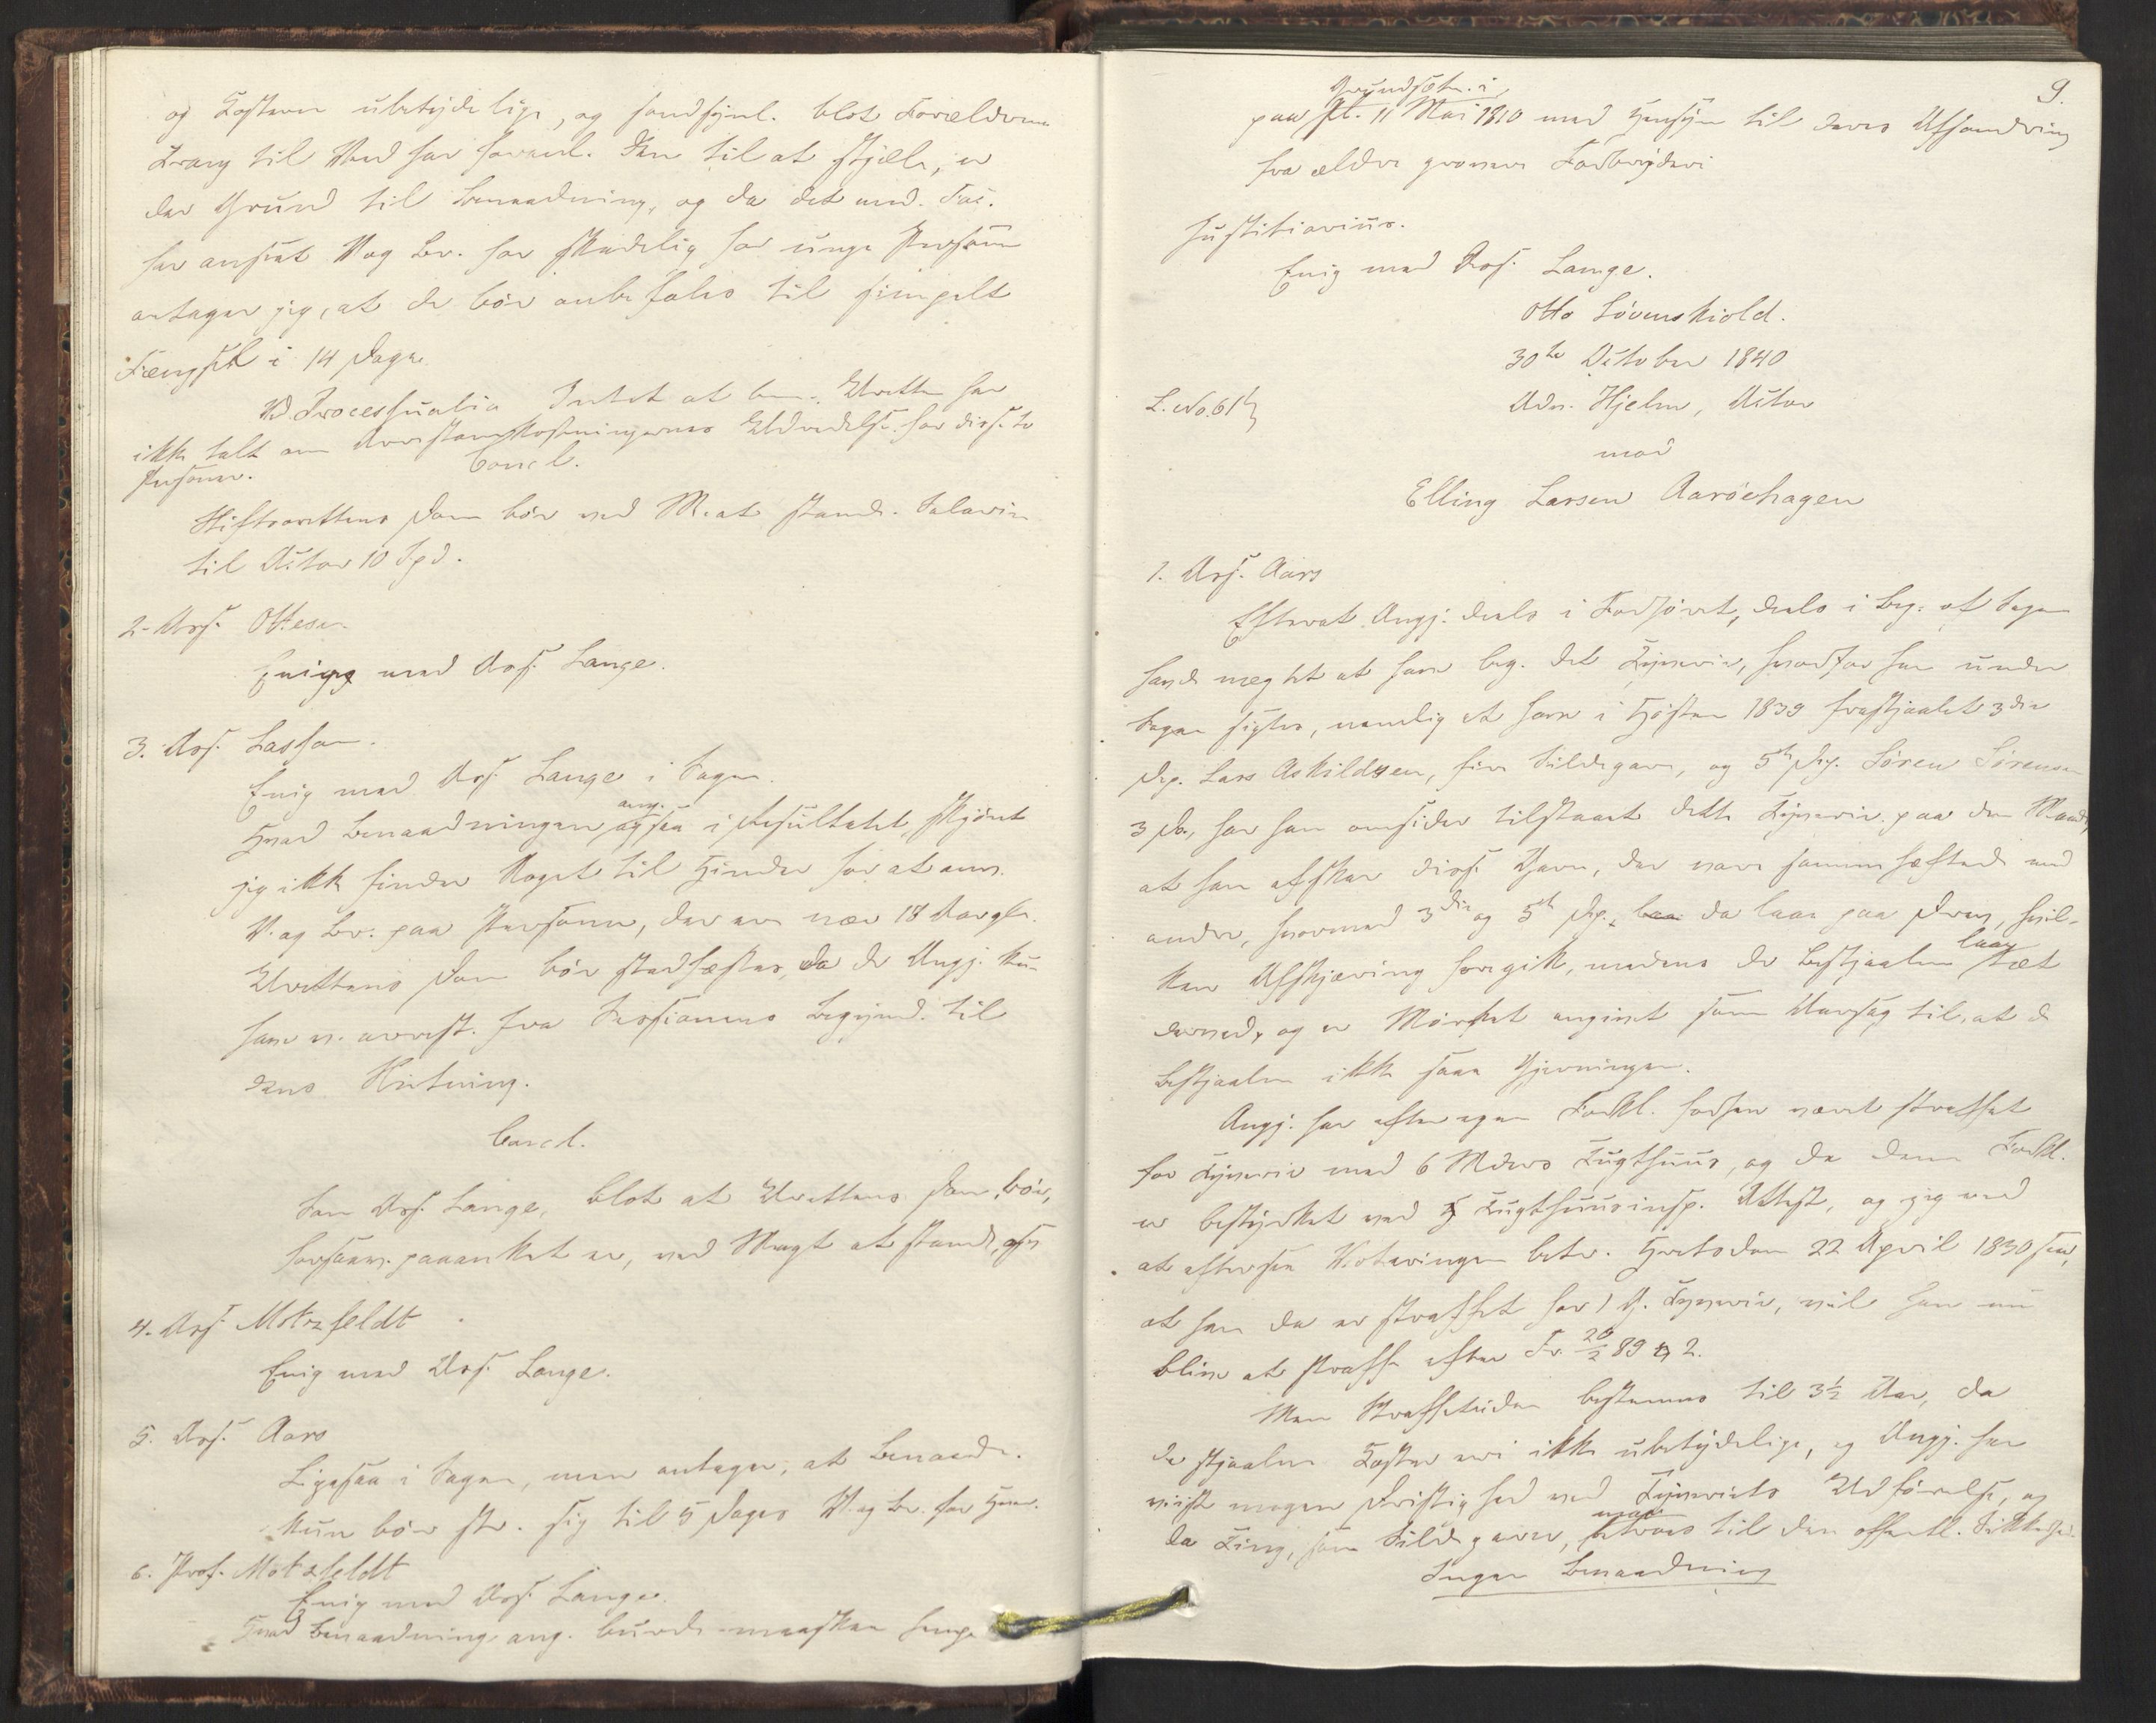 og Kosterne ubetydelige, og sandsynl. blot Forældrenes
Trang til Ved har foranl. dem til at stjæle, er
der Grund til Benaadning, og da det med. Fac.
har anseet V og Br. for skadelig for unge Personer
antager jeg, at de bør anbefales til simpelt
Fængsel i 14 Dage.
Vd. Processualia Intet at bem. Uretten har
ikke talt om Arrestomkostningernes Udredelse for disse to
Personer.
Concl.
Stiftsrettens Dom bør ved M. at stande. Salarier
til Actor 10 Spd.
2. Ass. Ottesen.
Enig med Ass. Lange.
3. Ass. Lasson.
Enig med Ass. Lange i Sagen.
Hvad Benaadningen ang. ogsaa i Resultatet, skjönt
jeg ikke finder Noget til Hinder for at anv.
V. og Br. paa Personer, der ere nær 18 Aar gle.
Urettens Dom bør stadfæstes, da de Angj. kun
have v. arrest. fra Sessionens Begynd. til
dens Slutning.
Concl.
Som Ass. Lange, blot at Urettens Dom, bør,
forsaav. paaanket er, ved Magt at stande, osv
4. Ass. Motzfeldt
Enig med Ass. Lange.
5. Ass. Aars
Ligesaa i Sagen, men antager, at Benaadn.
kun bør str. sig til 5 Dages V. og Br. for Hver.
6. Prof. Motzfeldt
Enig med Ass. Lange.
Hvad Benaadning ang. burde maaskee henge
9.
Grundsætn. i
paa Pl. 11 Mai 1810 med Hensyn til deres Afsondring
fra ældre grovere Forbrydere
Justitiarius.
Enig med Ass. Lange.
Otto Lövenskiold.
30te October 1840
L. No. 61
Adv. Hjelm, Actor
mod
Elling Larsen Aaröehagen
1. Ass. Aars
Efterat Angj. deels i Forhöret, deels i Beg. af Sagen
havde nægtet at have beg. det Tyverie, hvorfor han under
Sagen sigtes, nemlig at have i Hösten 1839 frastjaalet 3die
Dep. Lars Askildsen, fire Sildegarn, og 5te Dep. Sören Sörensen
3 Do., har han omsider tilstaaet dette Tyverie paa den Maade,
at han afskar disse Garn, der vare sammenhæftede med
andre, hvormed 3die og 5te Dep. da laae paa Dræv, hvil-
ken Afskjæring foregik, medens de Bestjaalne laae tæt
derved, og er Mörket angivet som Aarsag til, at de
Bestjaalne ikke saae Gjerningen.
Angj. har efter egen Forkl. forhen været straffet
for Tyverie med 6 Mdrs Tugthuus, og da denne Forkl.
er bestyrket ved Tugthuusinsp. Attest, og jeg ved
at eftersee Voteringen betr. Hrets dom 22 April 1830 seer,
at han da er straffet for 1 G. Tyverie, vil han nu
blive at straffe efter Fr. 20/2 89 § 2.
Men Straffetiden bestemmes til 3½ Aar, da
de stjaalne Koster ere ikke ubetydelige, og Angj. har
viist megen Dristighed ved Tyveriets Udförelse, og
da Ting, som Sildegarn, maae betroes til den offentl. Sikkerhed.
Ingen Benaadning